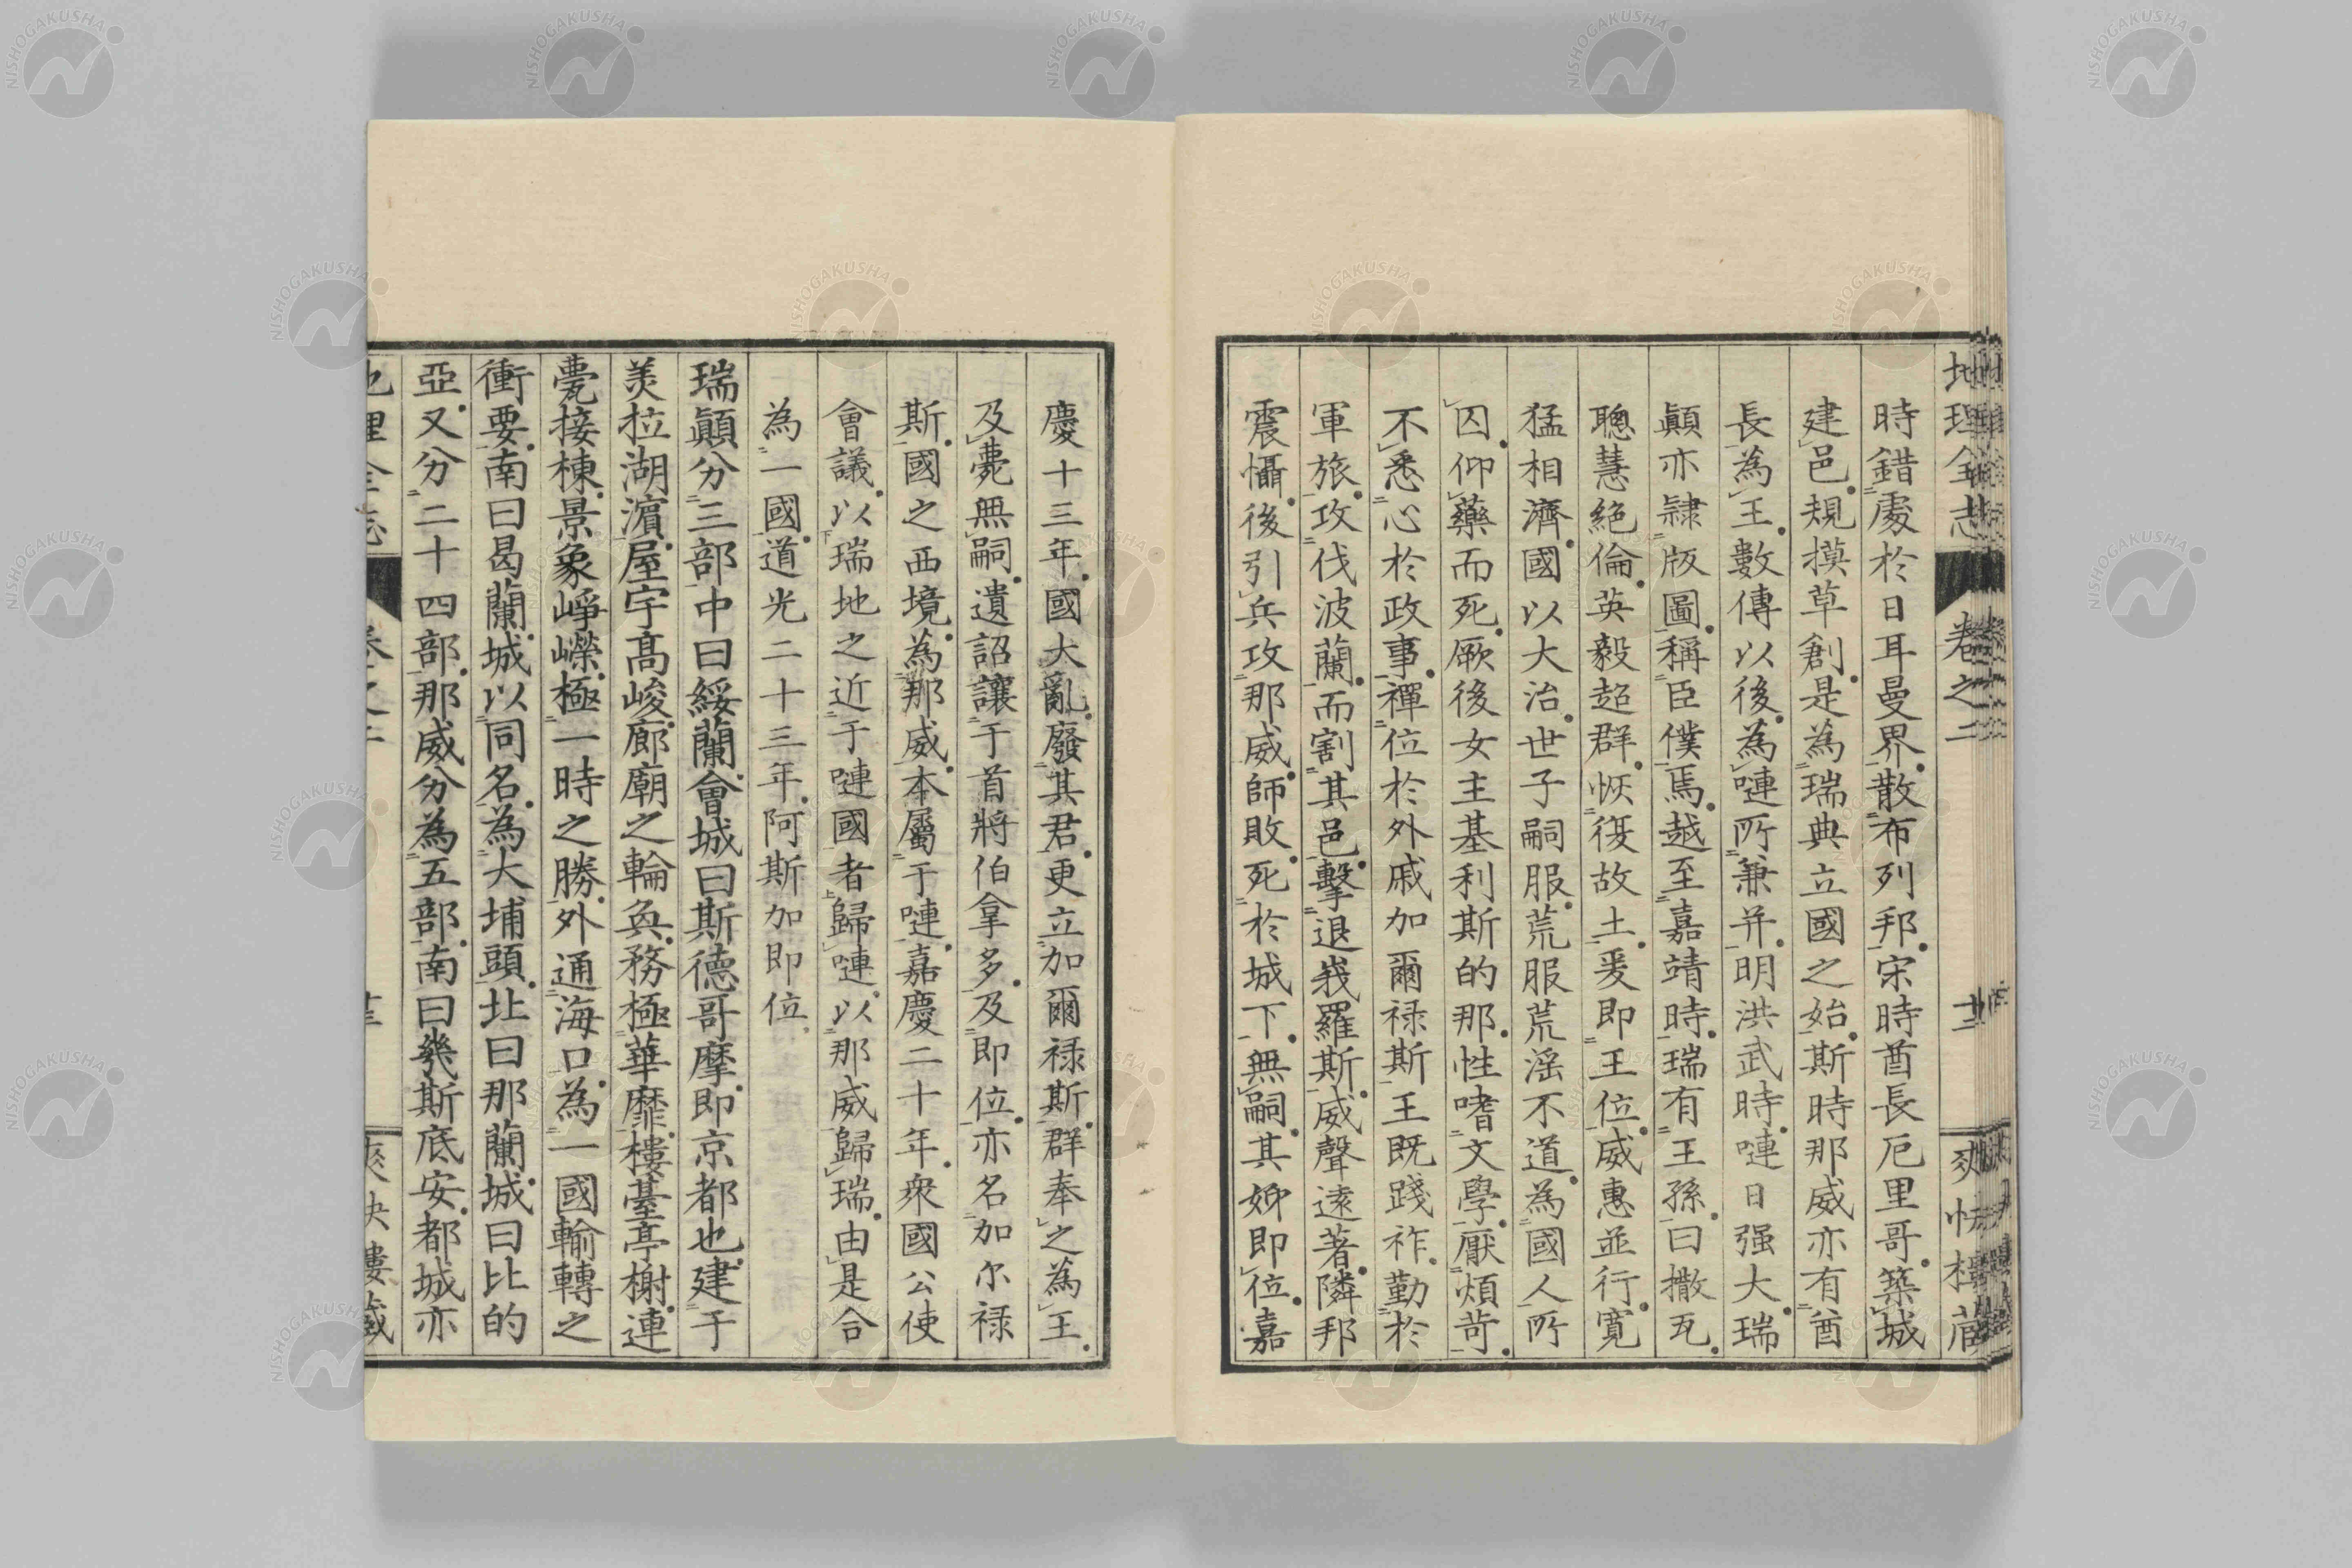 地理全志 卷之二 十二 爽快樓藏
時錯處於日耳曼界散布列邦宋時酋長厄里哥築城
建邑規摸草創是為瑞典立國之始斯時那威亦有酋
長為王數傳以後為嗹所兼并明洪武時嗹日强大瑞
顚亦隷版圖稱臣僕焉越至嘉靖時瑞有王孫曰撒瓦
聰慧絕倫英毅超群恢復故土爰即王位威惠並行寬
猛相濟國以大治世子嗣服荒服荒淫不道為國人所
囚仰藥而死厥後女主基利斯的那性嗜文學厭煩苛
不悉心於政事禪位於外戚加爾祿斯王既踐祚勤於
軍旅攻伐波蘭而割其邑擊退峩羅斯威聲遠著隣邦
震懾後引兵攻那威師敗死於城下無嗣其姊即位嘉
慶十三年國大亂廢其君更立加爾祿斯群奉之為王
及薨無嗣遺詔讓于首將伯拿多及即位亦名加尔祿
斯國之西境為那威本屬于嗹嘉慶二十年衆國公使
會議以瑞地之近于嗹國者歸嗹以那威歸瑞由是合
為一國道光二十三年阿斯加即位
瑞顚分三部中曰綏蘭會城曰斯德哥摩即京都也建于
美拉湖濵屋宇高峻廊廟之輪奐務極華靡樓臺亭榭連
甍接棟景象崢嶸極一時之勝外通海口為一國輸轉之
衝要南曰曷蘭城以同名為大埔頭北曰那蘭城曰比的
亞又分二十四部那威分為五部南曰幾斯底安都城亦
地理全志 卷之二 十三 爽快樓藏
NISHOGAKUSHA